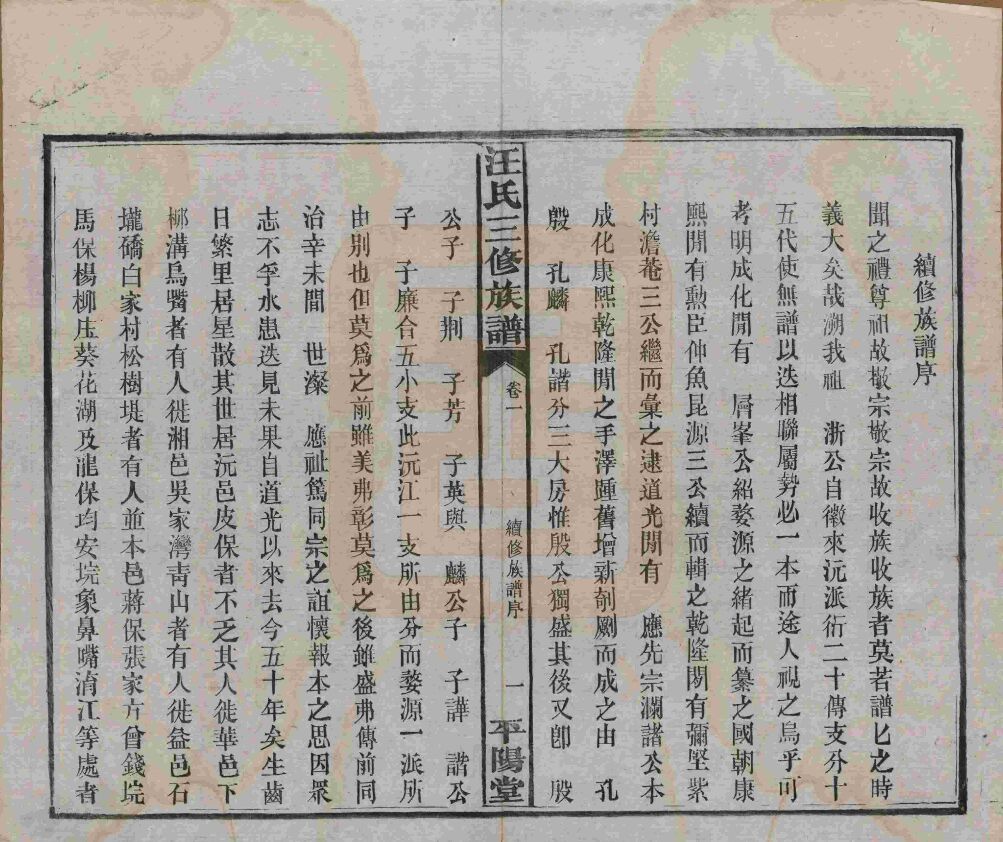 續修族譜序
聞之禮尊祖故敬宗敬宗故收族收族者莫若譜匕之時
義大矣哉溯我祖 浙公自徽來沅派衍二十傳支分十
五代使無譜以迭相聯屬勢必一本而途人視之烏乎可
考明成化閒有 層峯公紹婺源之緒起而纂之國朝康
熙閒有勲臣仲魚昆源三公續而輯之乾隆閒有彌堅紫
村澹菴三公繼而彙之逮道光閒有 應先宗瀾諸公本
成化康熙乾隆閒之手澤踵舊增新剞劂而成之由 孔
殷 孔麟 孔諧分三大房惟殷公獨盛其後又卽 殷
汪氏三修族譜
卷一
續修族譜序
一
平陽堂
公子 子荆 子芳 子英與 麟公子 子譁 諧公
子 子廉合五小支此沅江一支所由分而婺源一派所
由别也但莫爲之前雖美弗彰莫爲之後雖盛弗傳前同
治辛未間 世濚 應祉篤同宗之誼懷報本之思因衆
志不孚水患迭見未果自道光以來去今五十年矣生齒
日繁里居星散其世居沅邑皮保者不乏其人徙華邑下
柳溝烏嘴者有人徙湘邑吳家灣靑山者有人徙益邑石
壠礄白家村松樹堤者有人並本邑蔣保張家亣曾錢垸
馬保楊柳庄葵花湖及龍保均安垸象鼻嘴淯江等處者